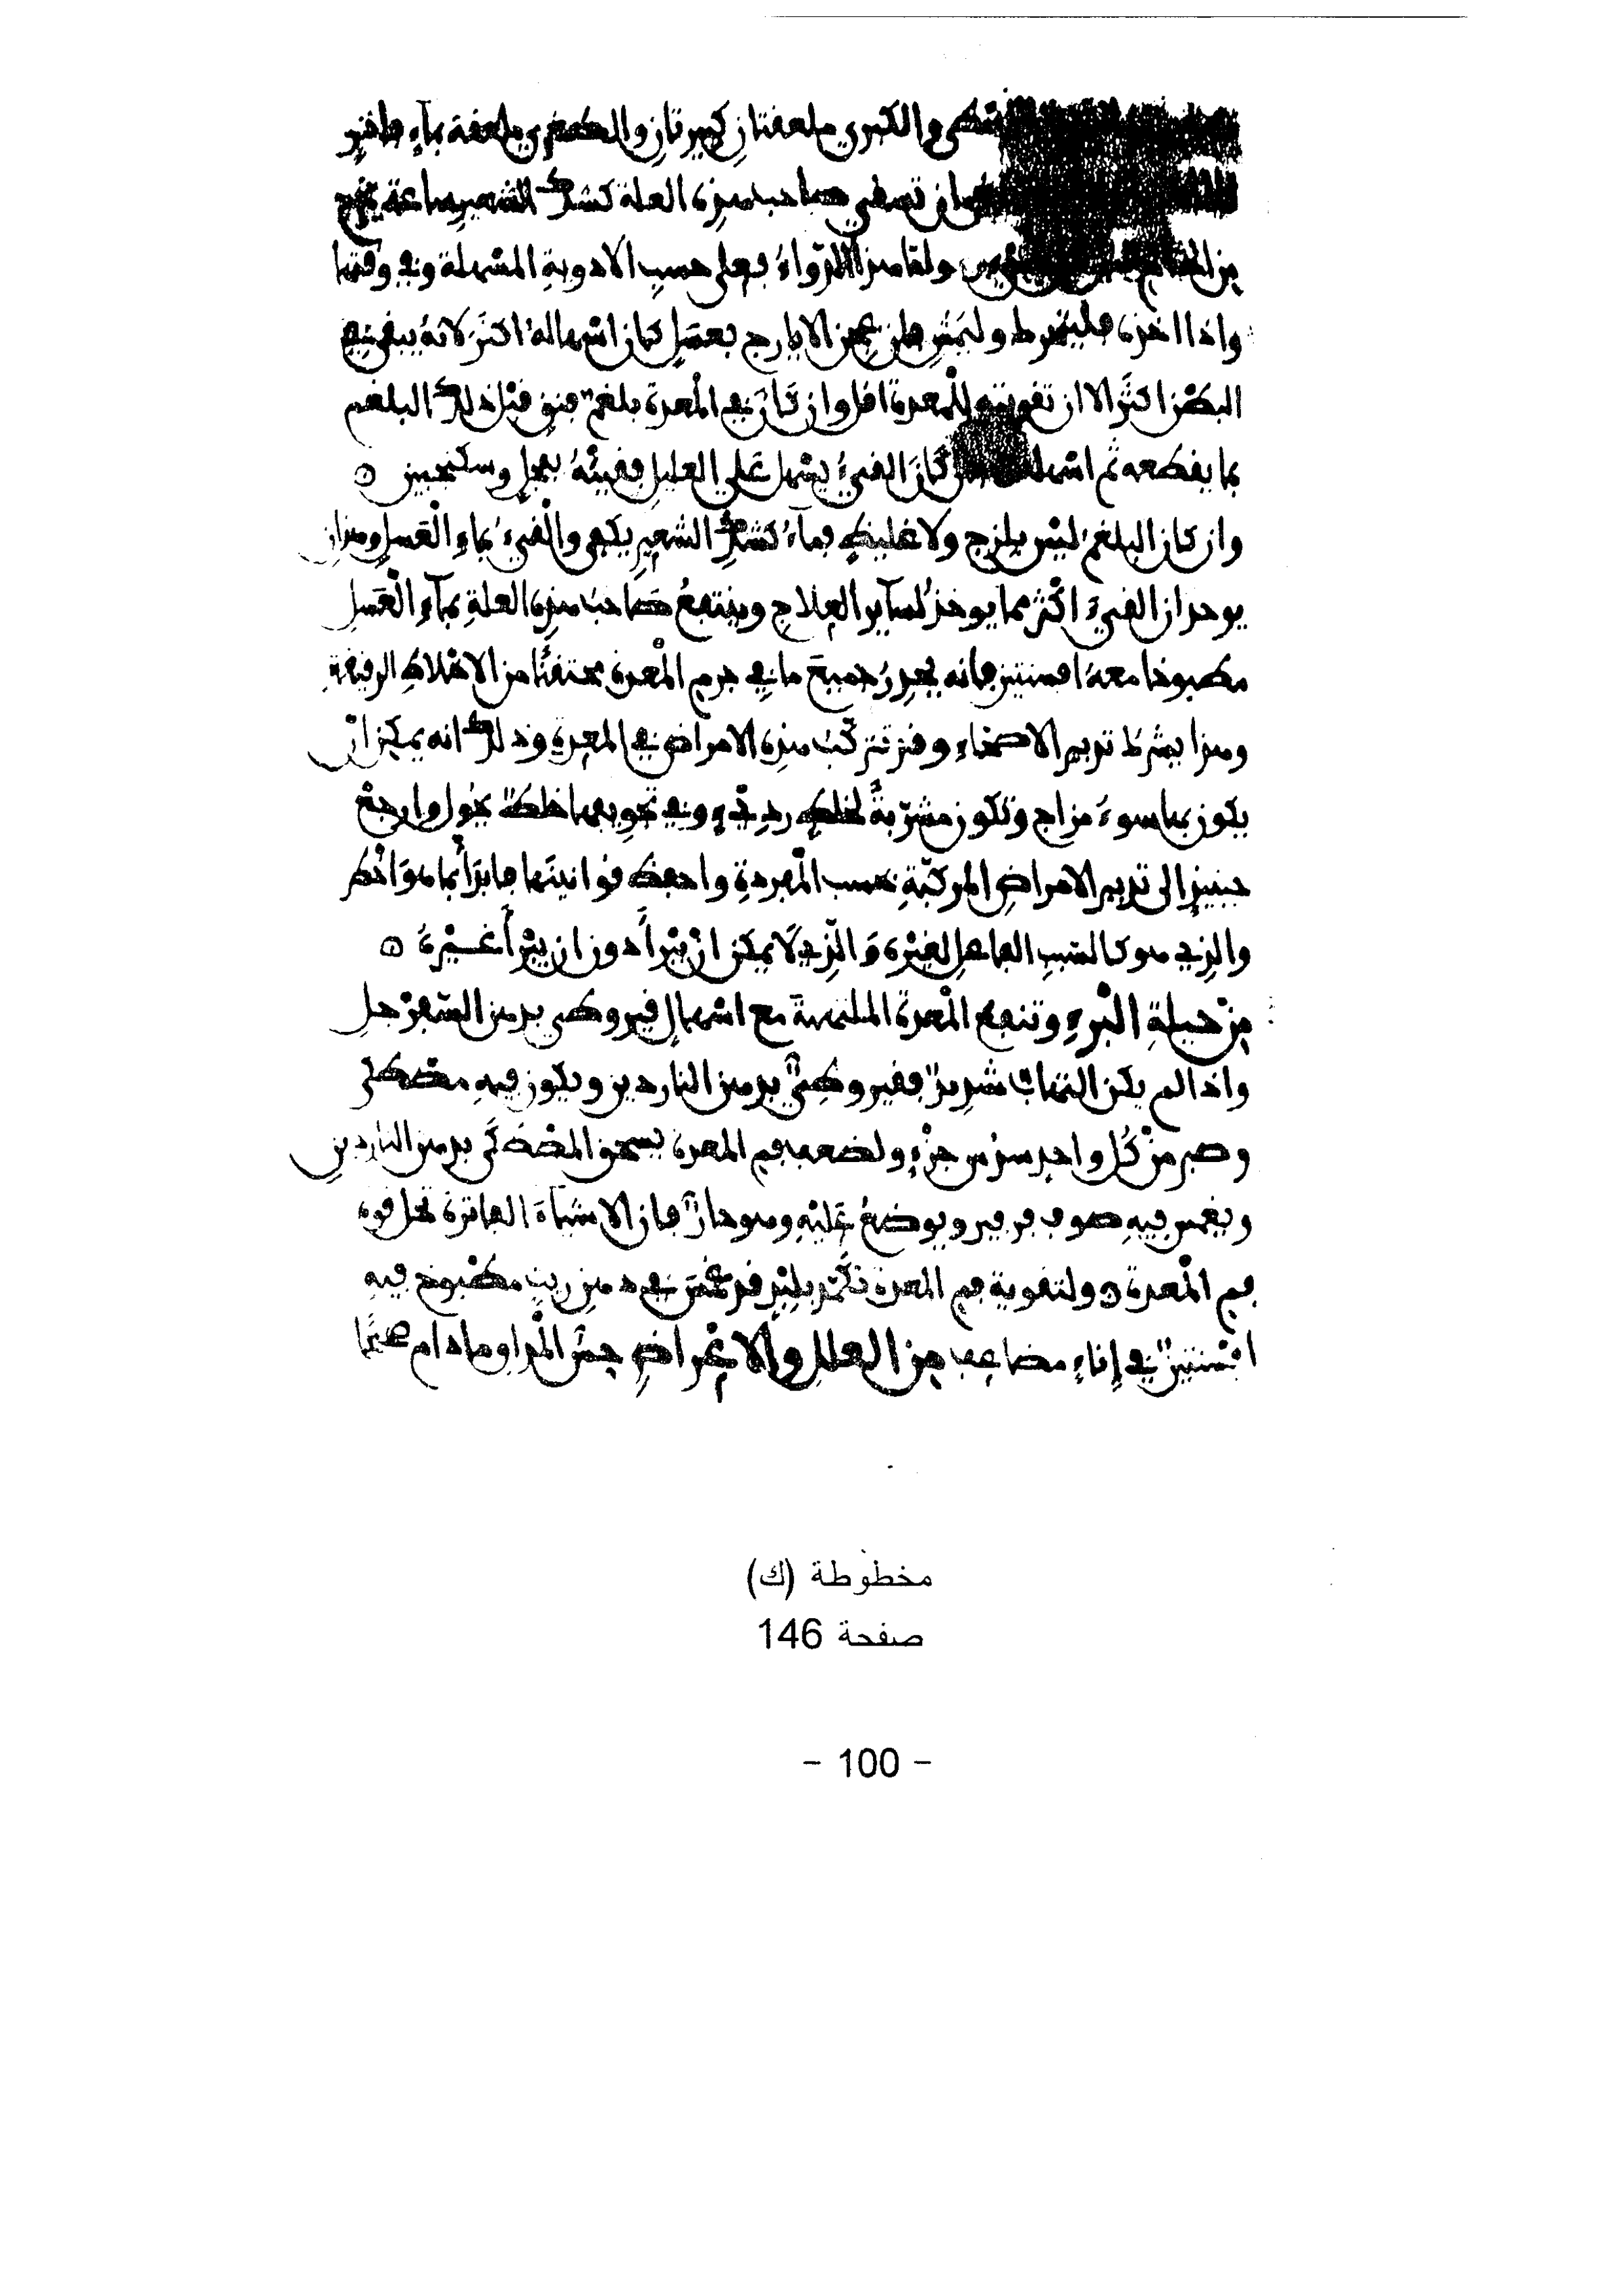 وسطى والكبرى ملعقتان كبيرتان والصغرى ملعقة بماء فاتر
وان تسقي صاحب هذه العلة كشك الشعير ساعة يخرج
من الحمام واما هذا الدواء فعلى حسب الادوية المسهلة وفي وقتها
واذا اخذه فليتمش فان عجن الايارج بعسل كان اسهاله اكثر لانه يبقى في
البطن اكثر الا ان تقويته للمعدة اقل وان كان في المعدة بلغم فنق قبل ذلك البلغم
بما يقطعه ثم اسهله كان القيء يسهل على العليل فقيئه بفجل وسكنجبين
وان كان البلغم ليس بلزج ولا غليظ فماء كشك الشعير يكفي والقيء بماء العسل وهذان
يوخذان للقيء اكثر مما يوخذ لساير العلاج وينتفع صاحب هذه العلة بماء العسل
مطبوخا معه افسنتين فانه يحدر جميع ما في جرم المعدة محتقنا من الاخلاط الرقيقة
وهذا بشرط تدبير الاصحاء وقد تتركب هذه الامراض في المعدة وذلك انه يمكن ان
يكون بها سوء مزاج وتكون مشربة لخلط رديء وفي تجويفها خلط يجول وارجع
حينيذ الى تدبير الامراض المركبة بحسب المفردة واحفظ قوانينها فابدأ بما هو اخطر
والذي هو كالسبب الفاعل لغيره والذي لا يمكن ان يبرأ دون ان يبرأ غيره
من حيلة البرء وتنفع المعدة الملتهبة مع اسهال قيروطي بدهن السفرجل
واذا لم يكن التهاب شديد فقيروطي بدهن الناردين ويكون فيه مصطكى
وصبر من كل واحد سدس جزء ولضعف فم المعدة يسحق المصطكى بدهن الناردين
ويغمس فيه صوف فرفير ويوضع عليه وهو حار فان الاشياء الفاترة تحل قوة
فم المعدة ولتقوية فم المعدة تكمد بلبد قد غمس في دهن زيت مطبوخ فيه
افسنتين في إناء مضاعف من العلل والاعراض جس المراق ما دام صحا
مخطوطة (ك)
صفحة 146
- 100 -